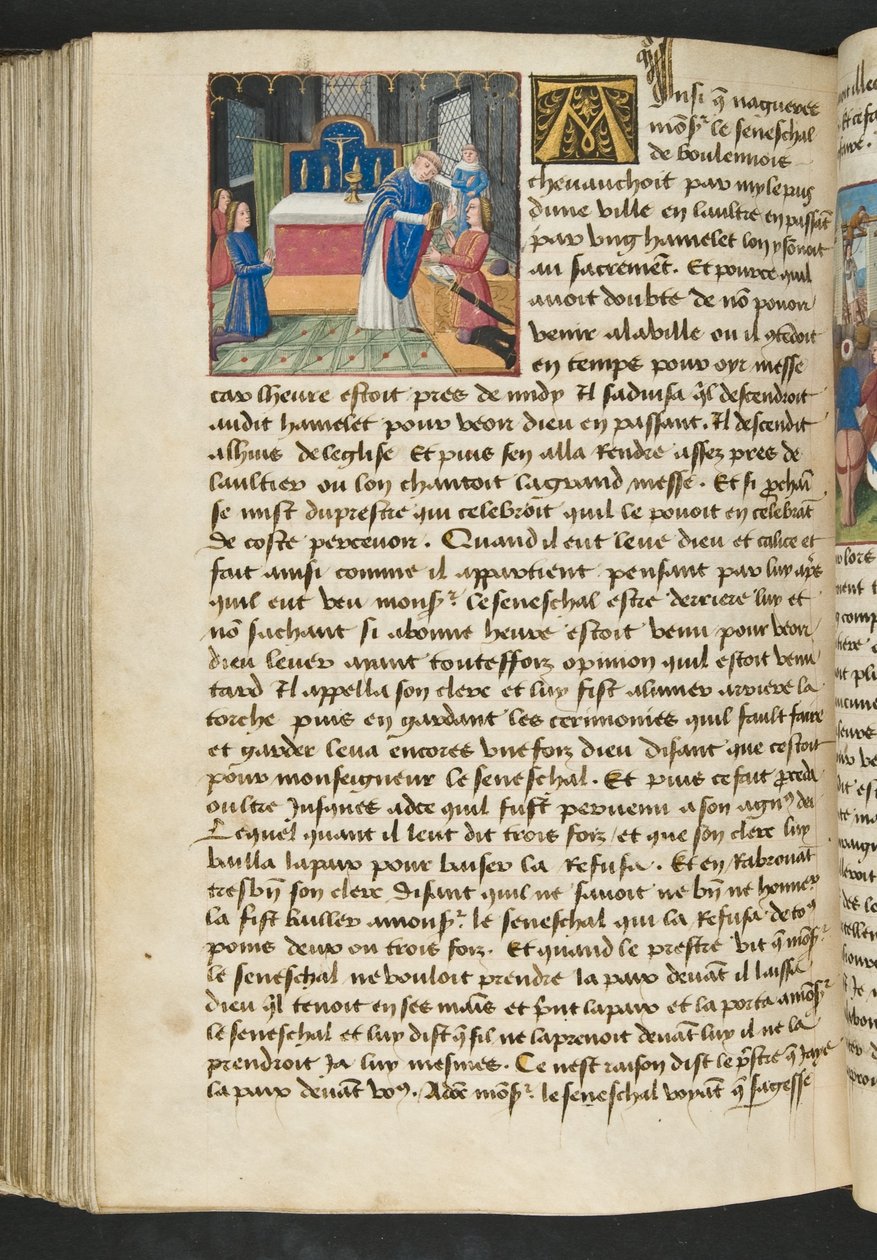 Ainsi q̃ nagueres
mõsr le seneschal
de boulennois
cheuauchoit par my le pays
dune ville en laultre en passãt
par vng hamelet lon y sõnoit
au sacremẽt. Et pource quil
auoit doubte de nõ pouoir
venir a la ville ou il ꝯtẽdoit
en temps pour oyr messe
car lheure estoit pres de midy Il saduisa ql̃ descendroit
audit hamelet pour veoir dieu en passant. Il descendit
a lhuis de leglise Et puis sen alla rendre assez pres de
laultier ou lon chantoit la grand messe. Et si ꝓchaĩ
se mist du prestre qui celebroit quil le pouoit en celebrãt
de coste perceuoir. Quand il eut leue dieu et calice et
fait ainsi comme il appartient pensant par luy apr̃s
quil eut veu monsr le seneschal estre derriere luy et
nõ sachant si a bonne heure estoit venu pour veoir
dieu leuer ayant touteffoiz opinion quil estoit venu
tard Il appella son clerc et luy fist alumer arriere la
torche puis en gardant les cerimonies quil fault faire
et garder leua encores vne foiz dieu disant que cestoit
pour monseigneur le seneschal. Et puis ce fait ꝓceda
oultre Jusques a dce quil fust peruenu a son agn9 dei
Lequel quant il leut dit trois foiz et que son clerc luy
bailla la paix pour baiser la refusa. Et en rabrouãt
tresbñ son clerc disant quil ne sauoit ne bñ ne honner
la fist bailler a monsr le seneschal qui la refusa de to9
poins deux ou trois foiz. Et quand le prestre vit q̃ mõsr
le seneschal ne vouloit prendre la paix deuãt il laissa
dieu ql̃ tenoit en ses mais et prĩt la paix et la porta a mõsr
le seneschal et luy dist q̃ sil ne la prenoit deuãt luy il ne la
prendroit Ja luy mesmes. Ce nest raison dist le pr̃stre q̃ Jaye
la paix deuãt vo9. Adõc mõsr le seneschal voyãt q̃ sagesse